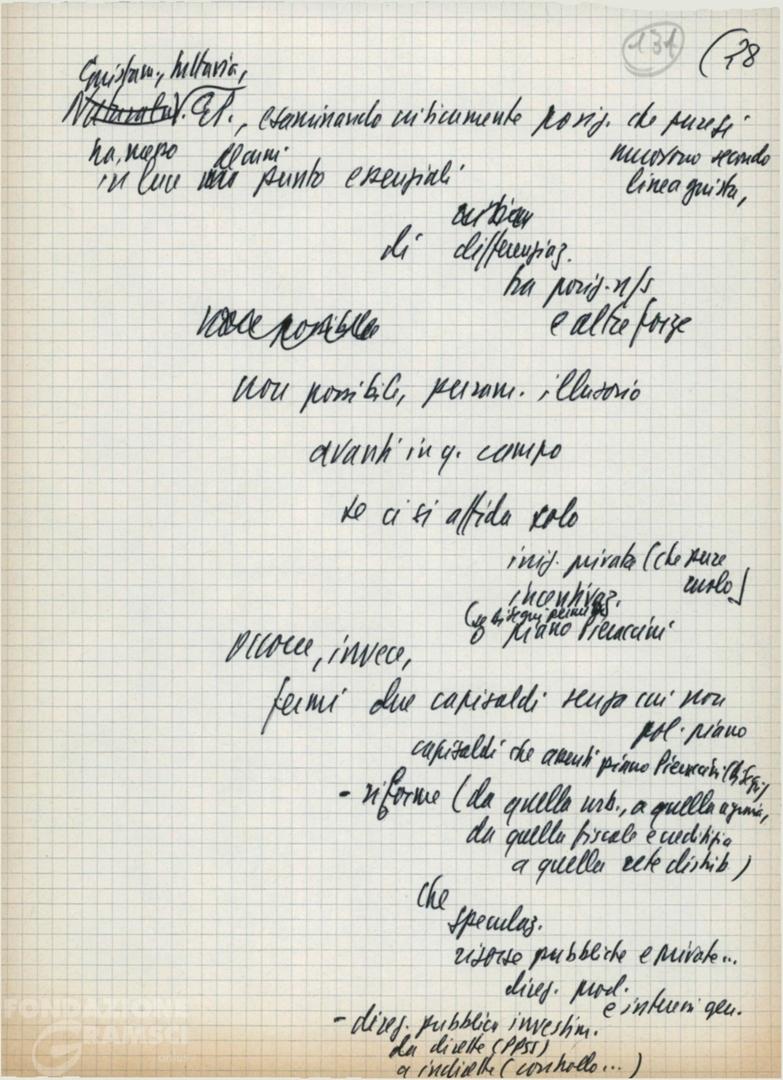 131
(28
Giustam., tuttavia,
Natural V. CP., esaminando criticamente posiz. che pure si
muovono secondo
linea giusta,
ha messo alcuni
in luce punto essenziali
di differenziaz.
tra posiz. n/s
e altre forze
non possibile
non possibile, persam. illusorio
avanti in q. campo
se ci si affida solo
iniz. privata (che pure
ruolo)
incentivaz.
piano Pieraccini
Occorre, invece,
fermi due capisaldi senza cui non
pol. piano
capisaldi che assenti piano Pieraccini
- riforme (da quella urb., a quella agraria,
da quella fiscale e creditizia
a quella rete distrib.)
che
speculaz.
risorse pubbliche e private...
direz. prod.
e interessi gen.
- direz. pubblica investim.
da dirette (PPSS)
a indirette (controllo...)
FONDAZIONE
GRAMSCI